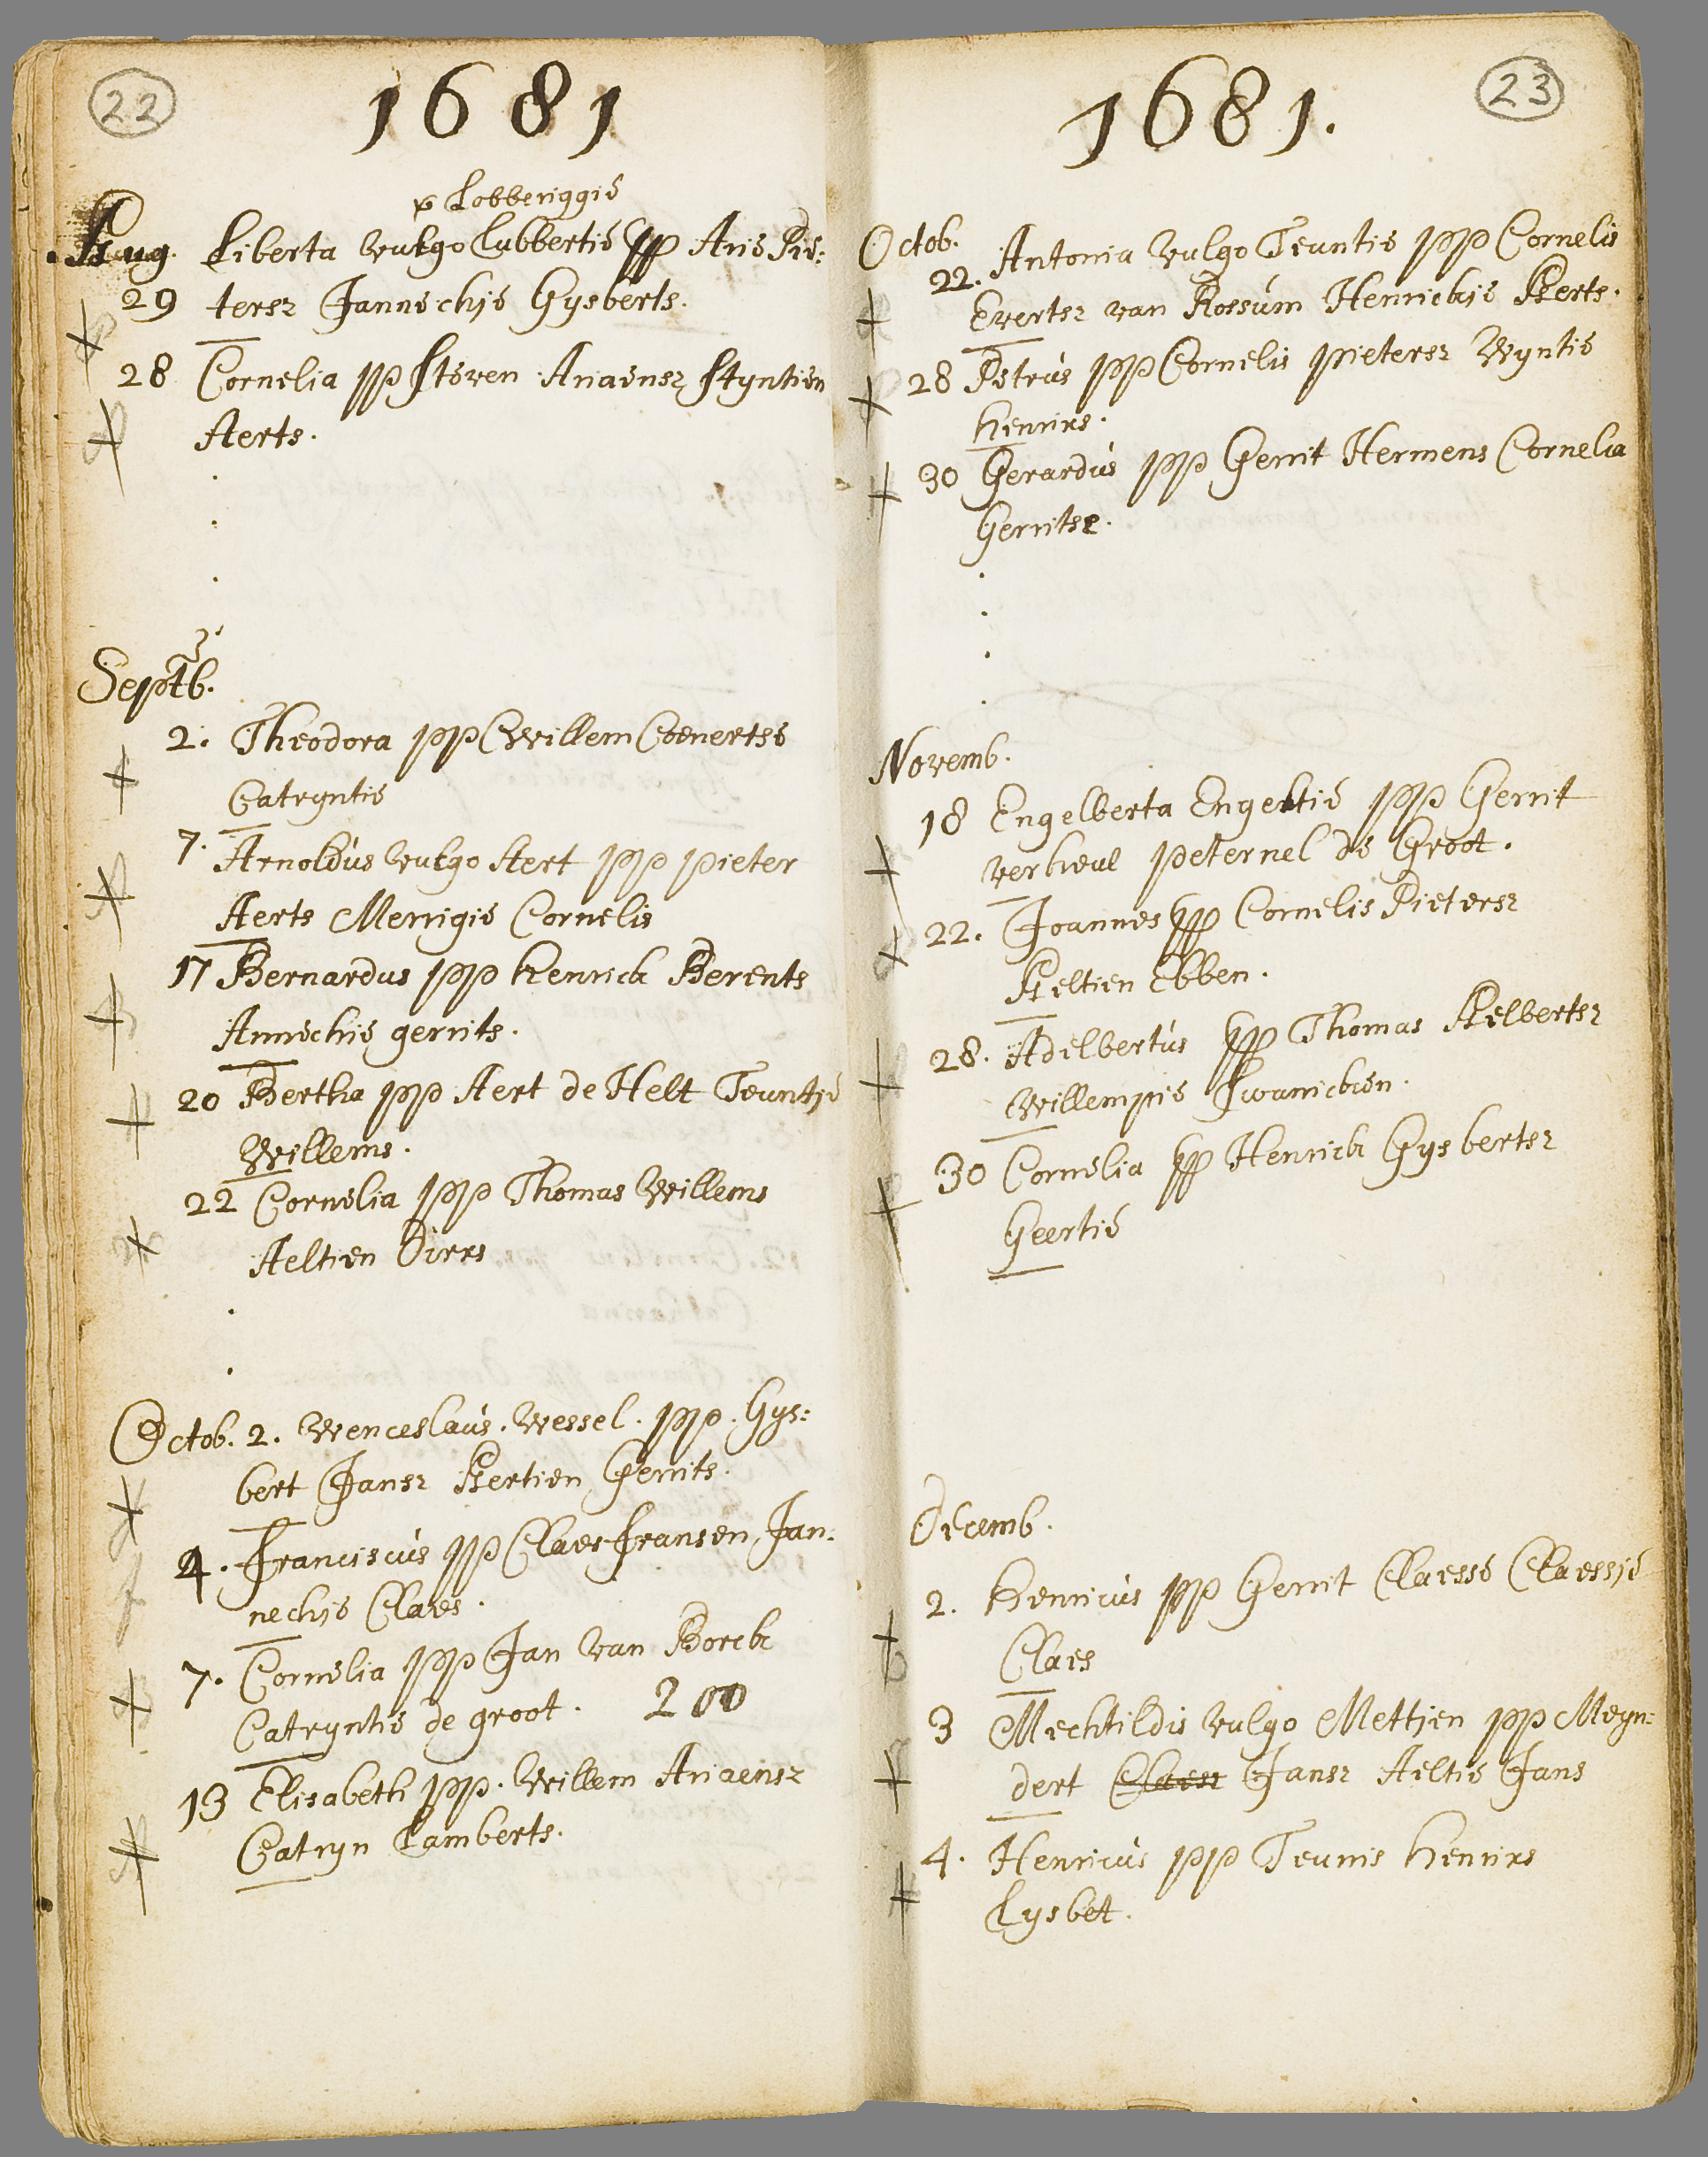 22
1681
v Lobberiggie
Aug. Liberta vulgo Lubbertie pp Aris Pie:
29 tersz Jannechje Gysberts.
28 Cornelia pp Steven Ariaensz Styntien
Aerts.
Septb.
2. Theodora pp Willem Coenertse
Catryntie
7. Arnoldus vulgo Aert pp pieter
Aerts Merrigie Cornelis
17 Bernardus pp henrick Berents
Annechie gerrits.
20 Bertha pp Aert de Helt Teuntje
Willems.
22 Cornelia pp Thomas Willems
Aeltien Dirrs
Octob. 2. Wenceslaus. Wessel. pp. Gys:
bert Jansz Aertien Gerrits.
4. Franciscus pp Claes Fransen, Jan:
nechje Claes.
7. Cornelia pp Jan van Borck
Catryntie de groot. 200
13 Elisabeth pp. Willem Ariaensz
Catryn Lamberts.
23
1681.
Octob.
22. Antonia vulgo Teuntie pp Cornelis
Evertsz van Rossum Henrickje Aerts.
28 Petrus pp Cornelis pietersz Wyntie
henrirs.
30 Gerardus pp Gerrit Hermens Cornelia
Gerritse.
Novemb.
18 Engelberta Engeltie pp Gerrit
verheul peternel de Groot.
22. Joannes pp Cornelis Pietersz
Aeltien Ebben.
28. Adelbertus pp Thomas Aelbertsz
Willempie Swanicken.
30 Cornelia pp Henrick Gysbertsz
Geertie
Decemb.
2. Henricus pp Gerrit Claesse Claessje
Claes
3 Mechtildis vulgo Mettjen pp Meyn:
dert Claesz Jansz Aeltie Jans
4. Henricus pp Teunis henrirs
Lysbet.